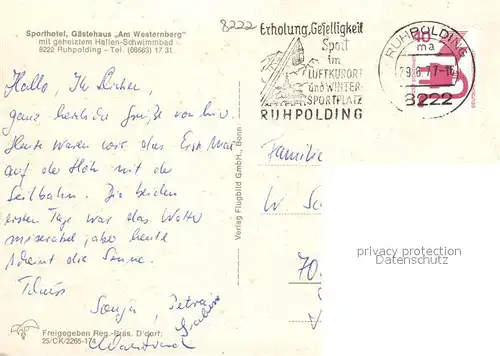 Sporthotel, Gästehaus „Am Westernberg"
mit geheiztem Hallen-Schwimmbad
8222 Ruhpolding - Tel. (08663) 17 31
8222
Erholung, Geselligkeit
Sport
im
LUFTKURORT
und WINTER-
SPORTPLATZ
RUHPOLDING
RUHPOLDING
ma
29.6.77-16
8222
40
Hallo, Ihr Lieben,
ganz herzliche Grüße von hier.
Heute waren wir das Erste Mal
auf der Höh mit der
Seilbahn. Die beiden
ersten Tage war das Wetter
miserabel, aber heute
scheint die Sonne.
Tschüss
Sonja, Petra,
Verlag Flugbild GmbH., Bonn
Familie
W. Sc
70
privacy protection
privacy protection
Freigegeben Reg.-Präs. D'dorf:
25/CK/2265-174